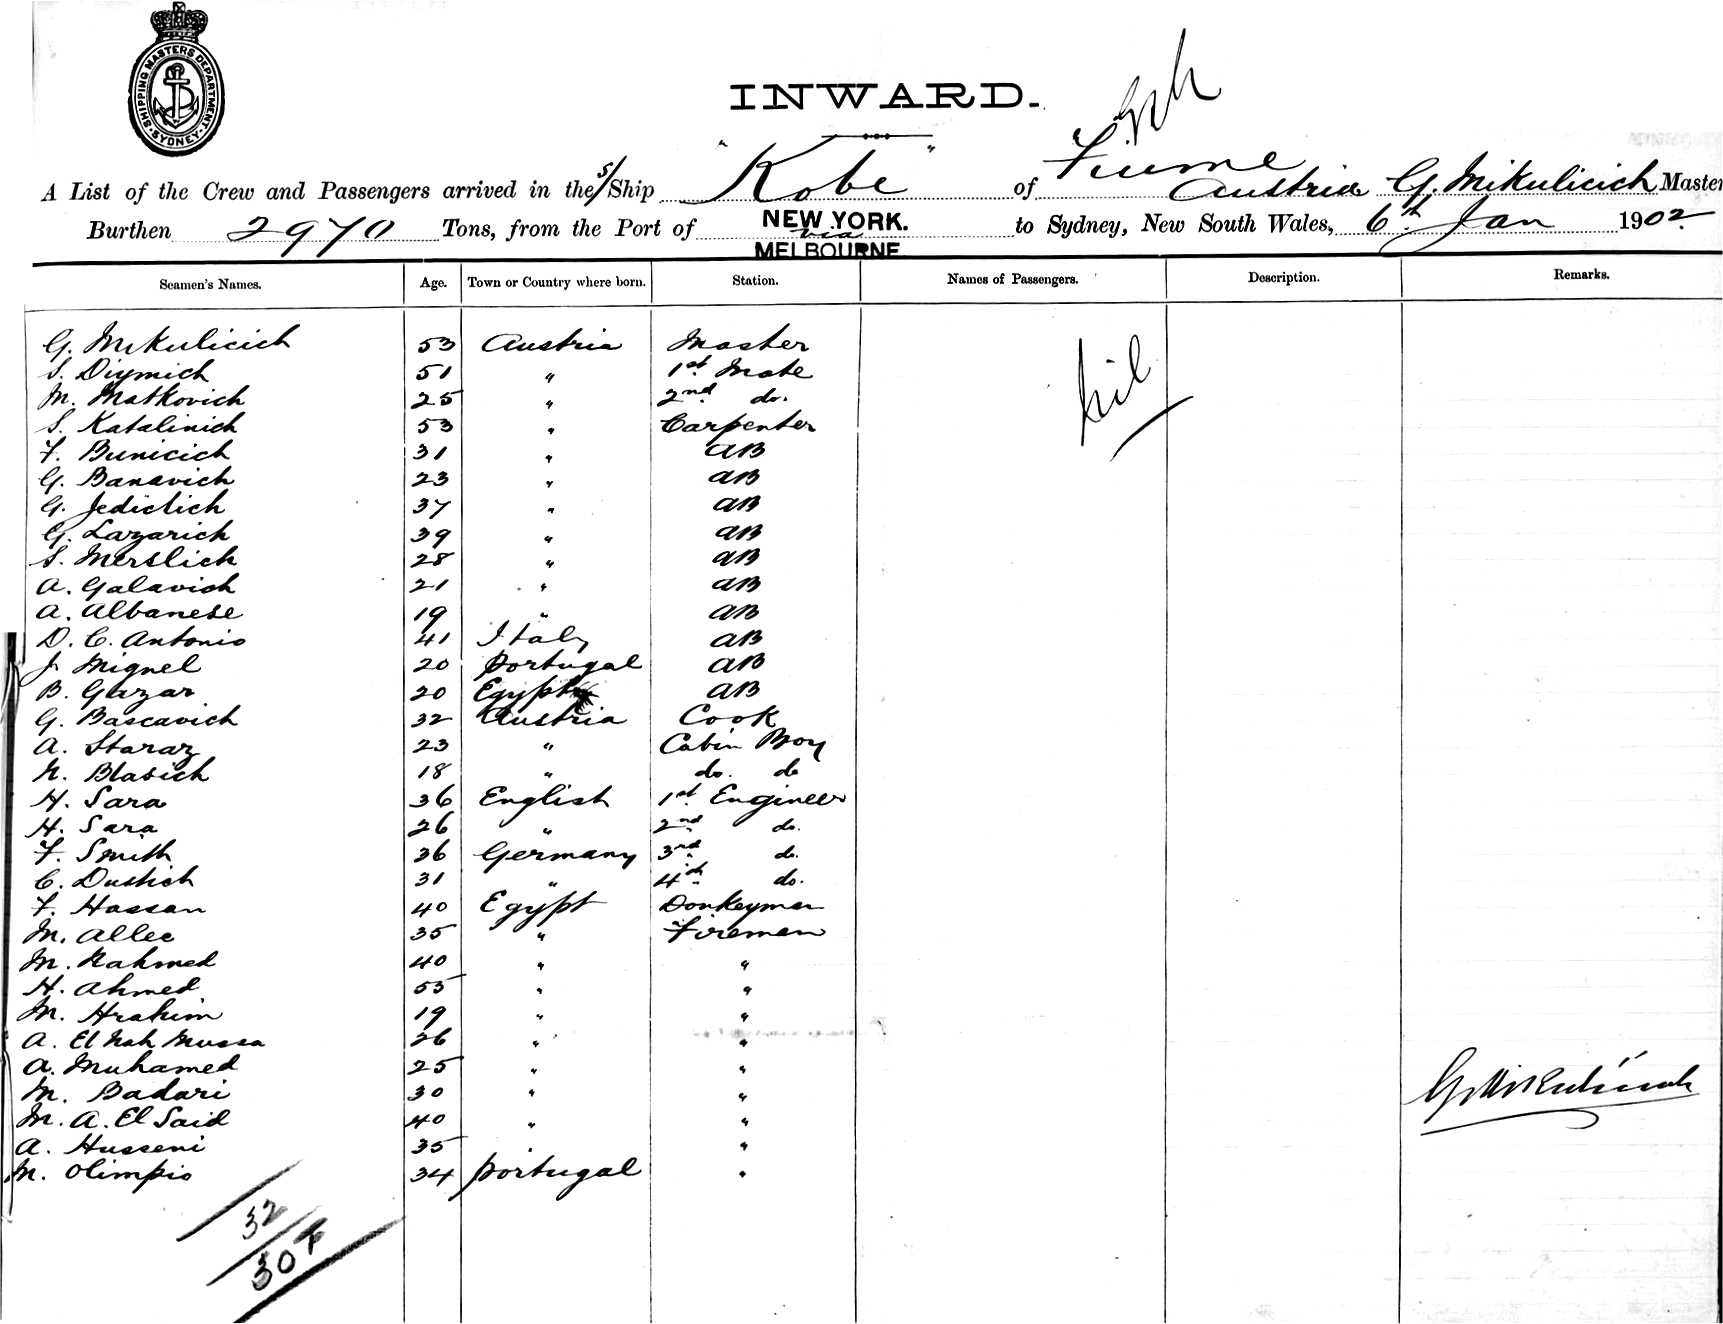 SHIPPING MASTERS DEPARTMENT · SYDNEY ·
INWARD.
A List of the Crew and Passengers arrived in the S/Ship "Kobe" of Fiume Austria G. Mikulicich Master
Burthen 2970 Tons, from the Port of NEW YORK. via MELBOURNE to Sydney, New South Wales, 6th Jan 1902
Seamen's Names. Age. Town or Country where born. Station. Names of Passengers. Description. Remarks.
G. Mikulicich 53 Austria Master Nil
S. Diymich 51 " 1st Mate
M. Matkovich 25 " 2nd do.
S. Katalinich 53 " Carpenter
F. Bunicich 31 " AB
G. Banavich 23 " AB
G. Jedictich 37 " AB
G. Lazarich 39 " AB
S. Merslich 28 " AB
A. Galavich 21 " AB
A. Albanese 19 " AB
D. C. Antonio 41 Italy AB
J. Mignel 20 Portugal AB
B. Gazar 20 Egypt AB
G. Bascavich 32 Austria Cook
A. Staraz 23 " Cabin Boy
N. Blasich 18 " do. do
H. Sara 36 English 1st Engineer
H. Sara 26 " 2nd do.
F. Smith 36 Germany 3rd do.
C. Dustich 31 " 4th do.
F. Hassan 40 Egypt Donkeyman
M. Allee 35 " Fireman
M. Rahmed 40 " "
H. Ahmed 55 " "
M. Hrahim 19 " "
A. El Nah Mussa 26 " "
A. Muhamed 25 " "
M. Badari 30 " " G. Mikulicich
M. A. El Said 40 " "
A. Husseni 35 " "
M. Olimpio 34 Portugal "
32
307